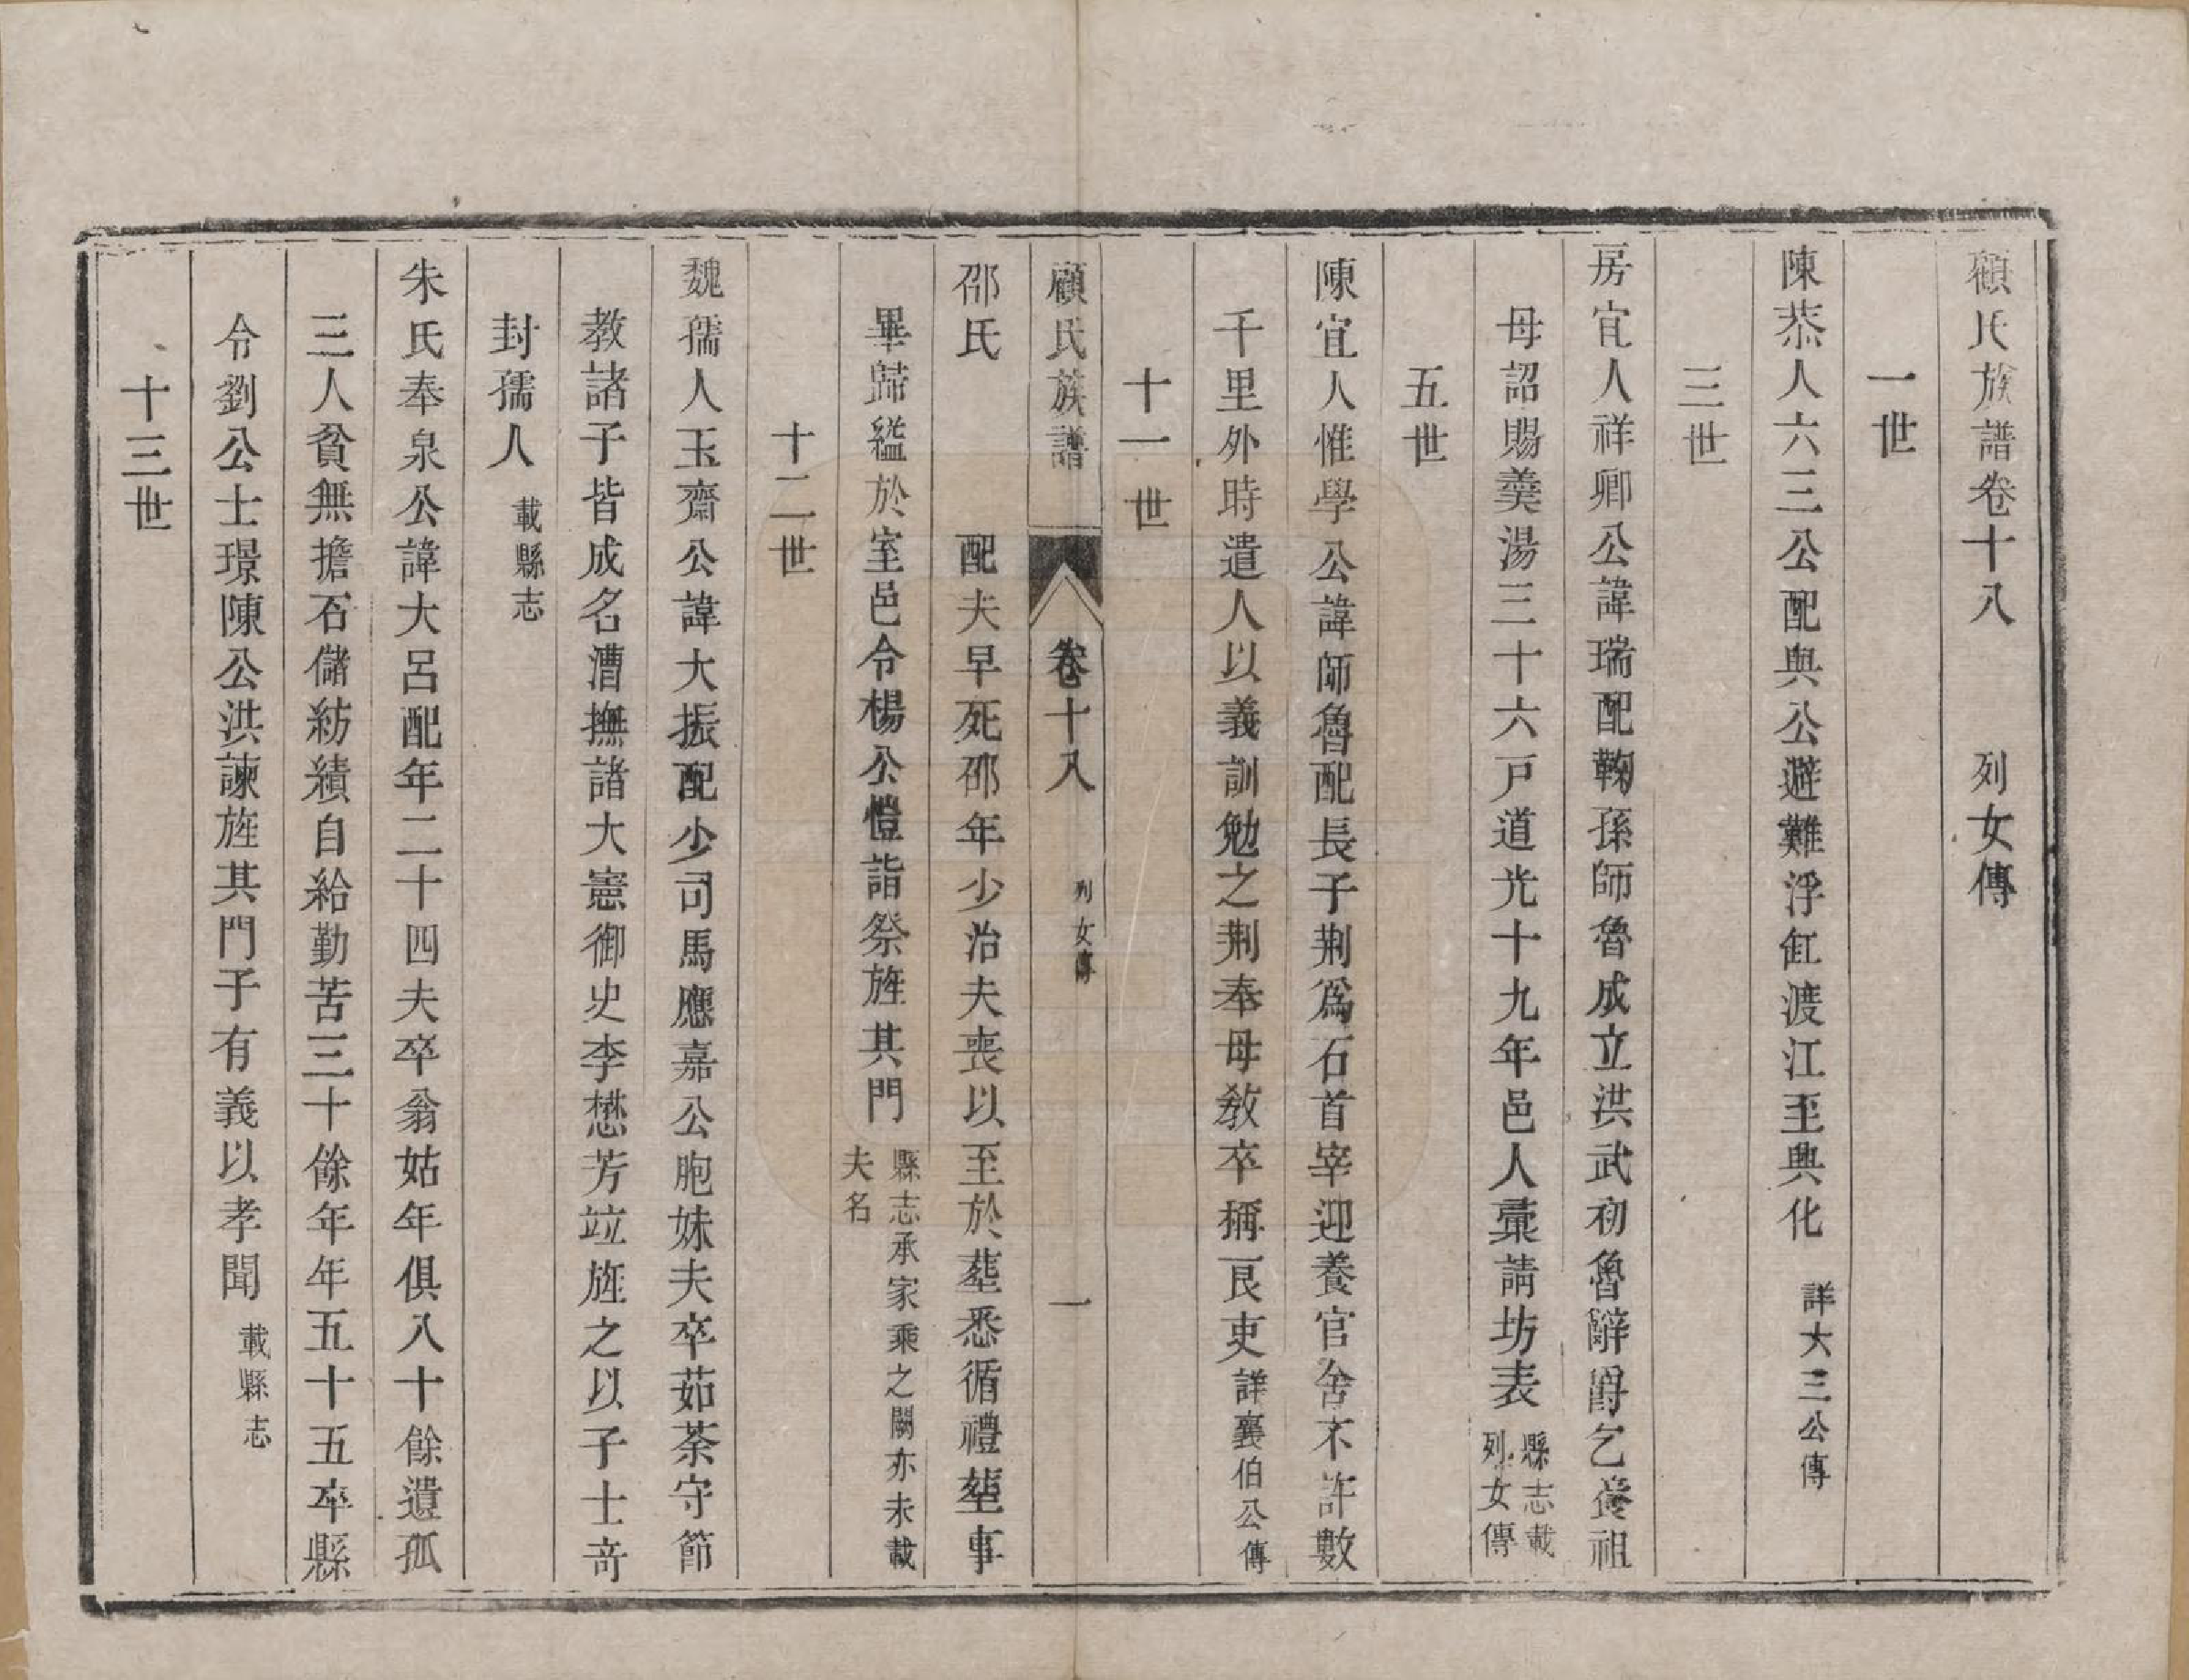 顧氏族譜卷十八　列女傳
一世
陳恭人六三公配與公避難浮缸渡江至興化詳大三公傳
三世
房宜人祥卿公諱瑞配鞠孫師魯成立洪武初魯辭爵乞養祖
母詔賜羹湯三十六戸道光十九年邑人彙請坊表縣志載列女傳
五世
陳宜人惟學公諱師魯配長子荆爲石首宰迎養官舍不許數
千里外時遣人以義訓勉之荆奉母教卒稱良吏詳襄伯公傳
十一世
顧氏族譜　卷十八　列女傳　一
邵氏　配夫早死邵年少治夫喪以至於塟悉循禮塟事
畢歸縊於室邑令楊公愷詣祭旌其門縣志承家乘之闕亦未載夫名
十二世
魏孺人玉齋公諱大振配少司馬應嘉公胞妹夫卒茹荼守節
教諸子皆成名漕撫諸大憲御史李懋芳竝旌之以子士竒
封孺人載縣志
朱氏奉泉公諱大呂配年二十四夫卒翁姑年俱八十餘遺孤
三人貧無擔石儲紡績自給勤苦三十餘年年五十五卒縣
令劉公士璟陳公洪諫旌其門子有義以孝聞載縣志
十三世